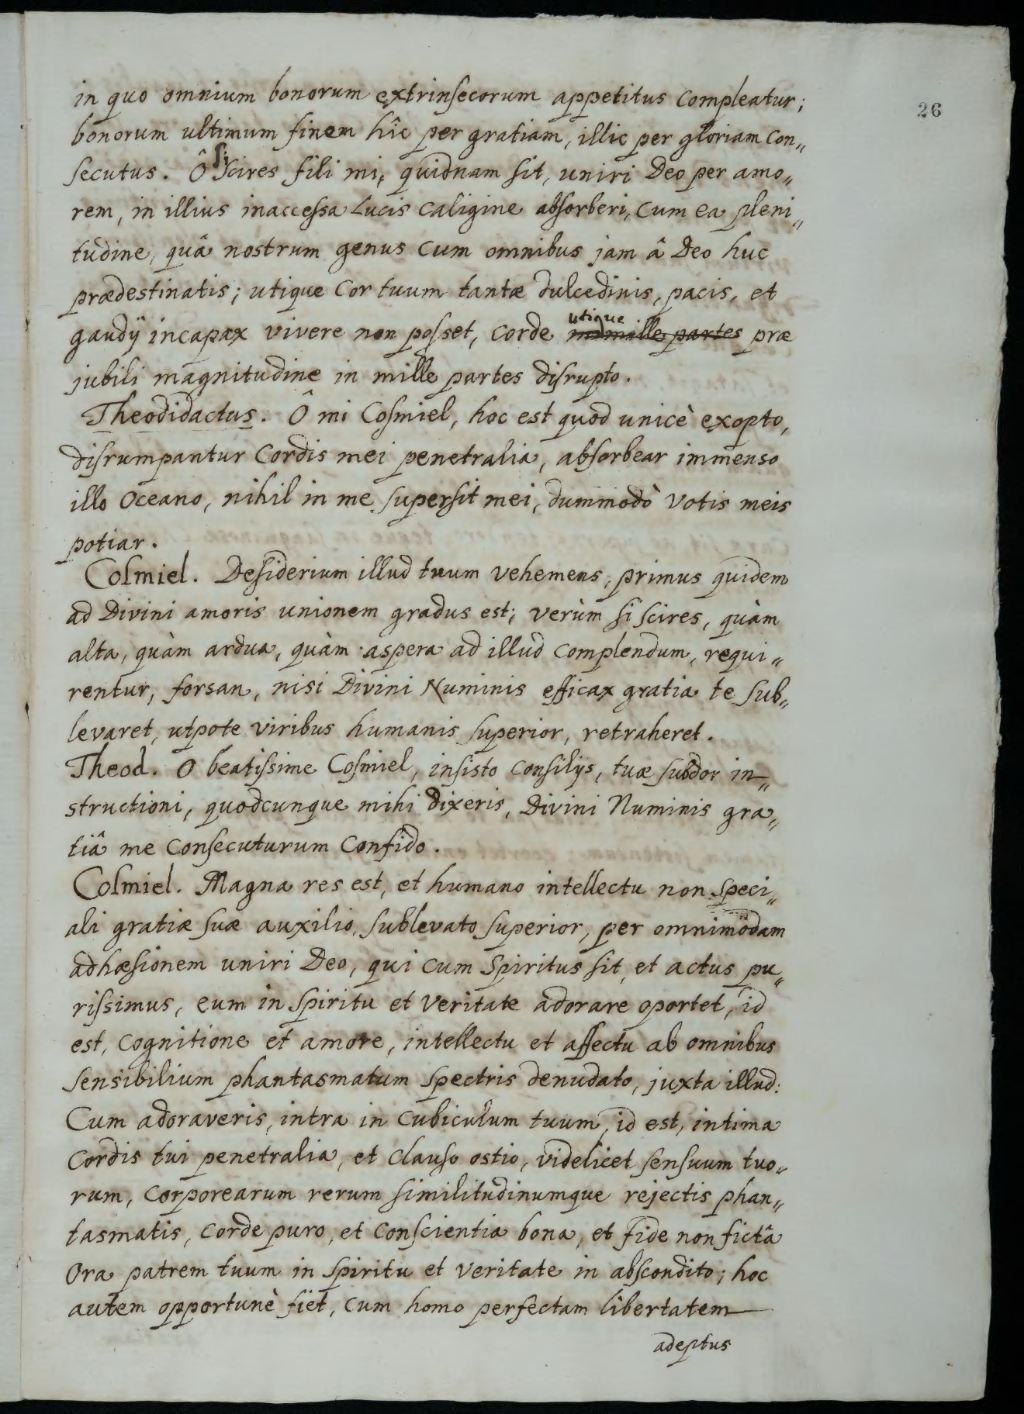 26
in quo omnium bonorum extrinsecorum appetitus compleatur;
bonorum ultimum finem hîc per gratiam, illic per gloriam con„
secutus. Ô si scires fili mi, quidnam sit, uniri Deo per amo„
rem, in illius inaccessa Lucis caligine absorberi, cum ea pleni„
tudine, quâ nostrum genus cum omnibus jam â Deo huc
prædestinatis; utique cor tuum tantæ dulcedinis, pacis, et
gaudij incapax vivere non posset, corde utique mille partes præ
jubili magnitudine in mille partes disrupto.
Theodidactus. Ô mi Cosmiel, hoc est quod unicè exopto,
disrumpantur Cordis mei penetralia, absorbear immenso
illo Oceano, nihil in me supersit mei, dummodò votis meis
potiar.
Cosmiel. Desiderium illud tuum vehemens, primus quidem
ad Divini amoris unionem gradus est; verùm si scires, quàm
alta, quàm ardua, quàm aspera ad illud complendum, requi„
rentur, forsan, nisi Divini Numinis efficax gratia te sub„
levaret, utpote viribus humanis superior, retraheret.
Theod. O beatissime Cosmiel, insisto consilijs, tuæ subdor in„
structioni, quodcunque mihi dixeris, Divini Numinis gra„
tiâ me consecuturum confido.
Cosmiel. Magna res est, et humano intellectu non speci„
ali gratiæ suæ auxilio sublevato superior, per omnimodam
adhæsionem uniri Deo, qui cum Spiritus sit, et actus pu„
rissimus, eum in Spiritu et veritate adorare oportet, id
est, cognitione et amore, intellectu et affectu ab omnibus
sensibilium phantasmatum spectris denudato, juxta illud:
Cum adoraveris, intra in cubiculum tuum, id est, intima
Cordis tui penetralia, et clauso ostio, videlicet sensuum tuo„
rum, corporearum rerum similitudinumque rejectis phan„
tasmatis, corde puro, et conscientia bona, et fide non fictâ
Ora patrem tuum in Spiritu et veritate in abscondito; hoc
autem opportunè fiet, cum homo perfectam libertatem
adeptus